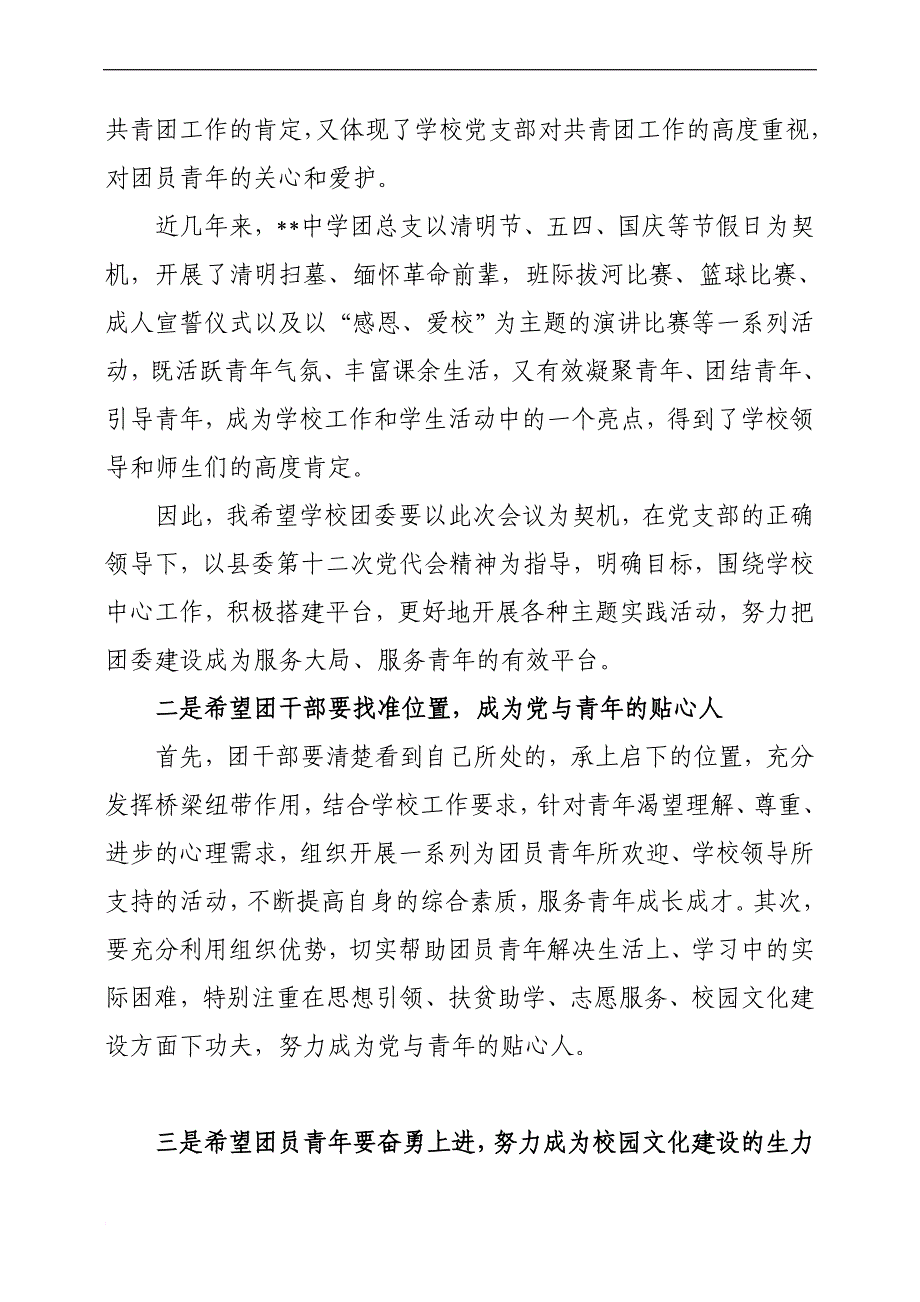 共青团工作的肯定，又体现了学校党支部对共青团工作的高度重视，
对团员青年的关心和爱护。
近几年来，**中学团总支以清明节、五四、国庆等节假日为契
机，开展了清明扫墓、缅怀革命前辈，班际拔河比赛、篮球比赛、
成人宣誓仪式以及以“感恩、爱校”为主题的演讲比赛等一系列活
动，既活跃青年气氛、丰富课余生活，又有效凝聚青年、团结青年、
引导青年，成为学校工作和学生活动中的一个亮点，得到了学校领
导和师生们的高度肯定。
因此，我希望学校团委要以此次会议为契机，在党支部的正确
领导下，以县委第十二次党代会精神为指导，明确目标，围绕学校
中心工作，积极搭建平台，更好地开展各种主题实践活动，努力把
团委建设成为服务大局、服务青年的有效平台。
二是希望团干部要找准位置，成为党与青年的贴心人
首先，团干部要清楚看到自己所处的，承上启下的位置，充分
发挥桥梁纽带作用，结合学校工作要求，针对青年渴望理解、尊重、
进步的心理需求，组织开展一系列为团员青年所欢迎、学校领导所
支持的活动，不断提高自身的综合素质，服务青年成长成才。其次，
要充分利用组织优势，切实帮助团员青年解决生活上、学习中的实
际困难，特别注重在思想引领、扶贫助学、志愿服务、校园文化建
设方面下功夫，努力成为党与青年的贴心人。
三是希望团员青年要奋勇上进，努力成为校园文化建设的生力